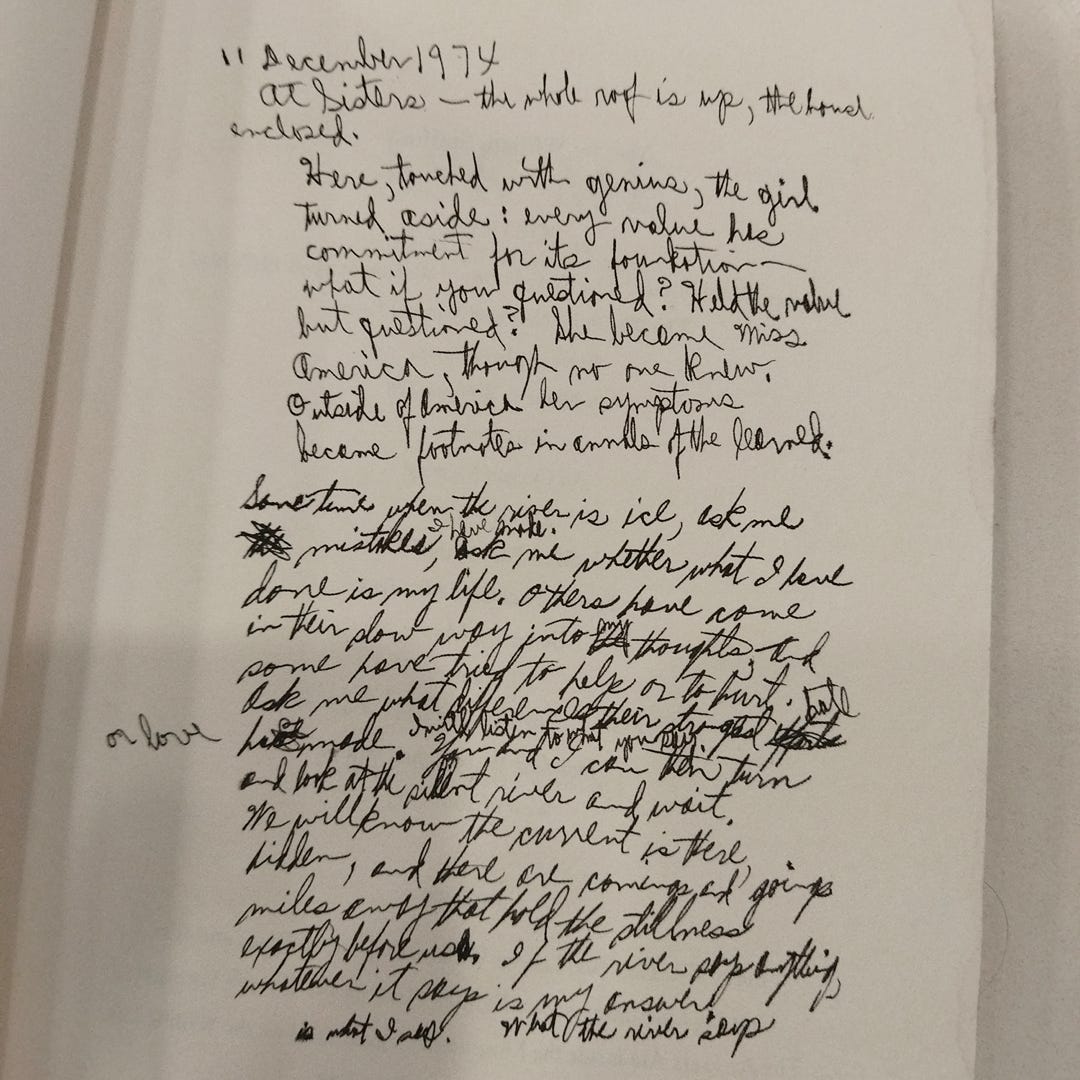 11 December 1974
At Sisters — the whole roof is up, the house
enclosed.
Here, touched with genius, the girl
turned aside: every value has
commitment for its foundation—
what if you questioned? Held the value
but questioned? She became Miss
America, though no one knew.
Outside of America her symptoms
became footnotes in annals of the learned.
Some time when the river is ice, ask me
mistakes, I have made. ask me whether what I have
done is my life. Others have come
in their slow way into my thoughts, and
some have tried to help or to hurt.
Ask me what differences their strongest hate
or love has made. I will listen to what you say.
You and I can then turn
and look at the silent river and wait.
We will know the current is there,
hidden, and there are comings and goings
miles away that hold the stillness
exactly before us. If the river says anything,
whatever it says is my answer.
is what I say. What the river says